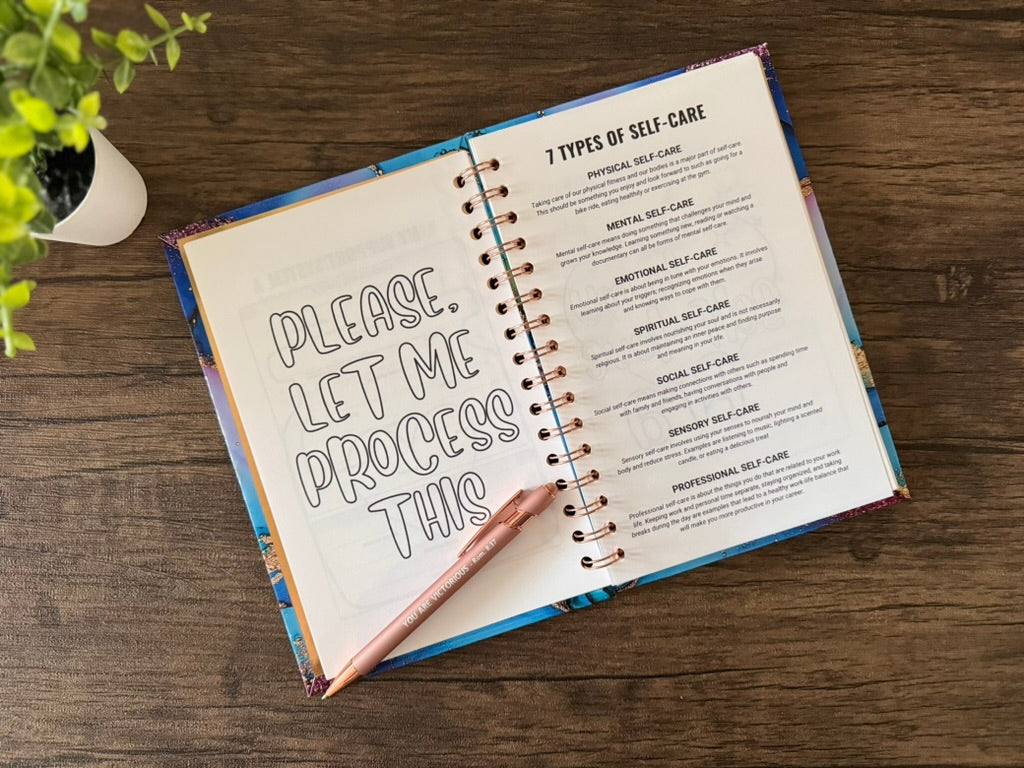 PLEASE,
LET ME
PROCESS
THIS
YOU ARE VICTORIOUS - Rom. 8:37
7 TYPES OF SELF-CARE
PHYSICAL SELF-CARE
Taking care of our physical fitness and our bodies is a major part of self-care.
This should be something you enjoy and look forward to such as going for a
bike ride, eating healthily or exercising at the gym.
MENTAL SELF-CARE
Mental self-care means doing something that challenges your mind and
grows your knowledge. Learning something new, reading or watching a
documentary can all be forms of mental self-care.
EMOTIONAL SELF-CARE
Emotional self-care is about being in tune with your emotions. It involves
learning about your triggers, recognizing emotions when they arise
and knowing ways to cope with them.
SPIRITUAL SELF-CARE
Spiritual self-care involves nourishing your soul and is not necessarily
religious. It is about maintaining an inner peace and finding purpose
and meaning in your life.
SOCIAL SELF-CARE
Social self-care means making connections with others such as spending time
with family and friends, having conversations with people and
engaging in activities with others.
SENSORY SELF-CARE
Sensory self-care involves using your senses to nourish your mind and
body and reduce stress. Examples are listening to music, lighting a scented
candle, or eating a delicious treat
PROFESSIONAL SELF-CARE
Professional self-care is about the things you do that are related to your work
life. Keeping work and personal time separate, staying organized, and taking
breaks during the day are examples that lead to a healthy work-life balance that
will make you more productive in your career.